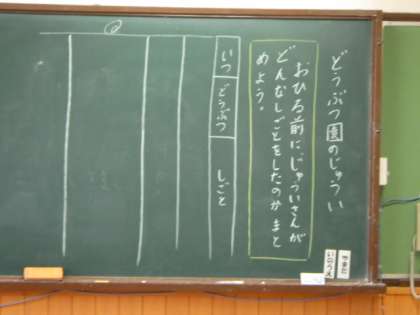 どうぶつ園のじゅうい
おひる前に、じゅういさんが
どんなしごとをしたのかまと
めよう。
いつ
どうぶつ
しごと
いのうえ